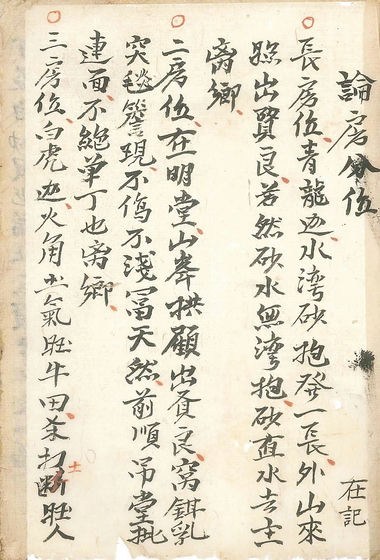 論房分位
在記
長房位青龍边水湾砂抱發一長外山來
照出賢良若然砂水無湾抱砂直水去主
离鄉
二房位在明堂山峯拱顧出賢良窩鉗乳
突毬簷現不傷不淺冨天然前順吊堂
連面不絕单丁也离鄉
三房位白虎边火角土氣旺牛田若打断旺人